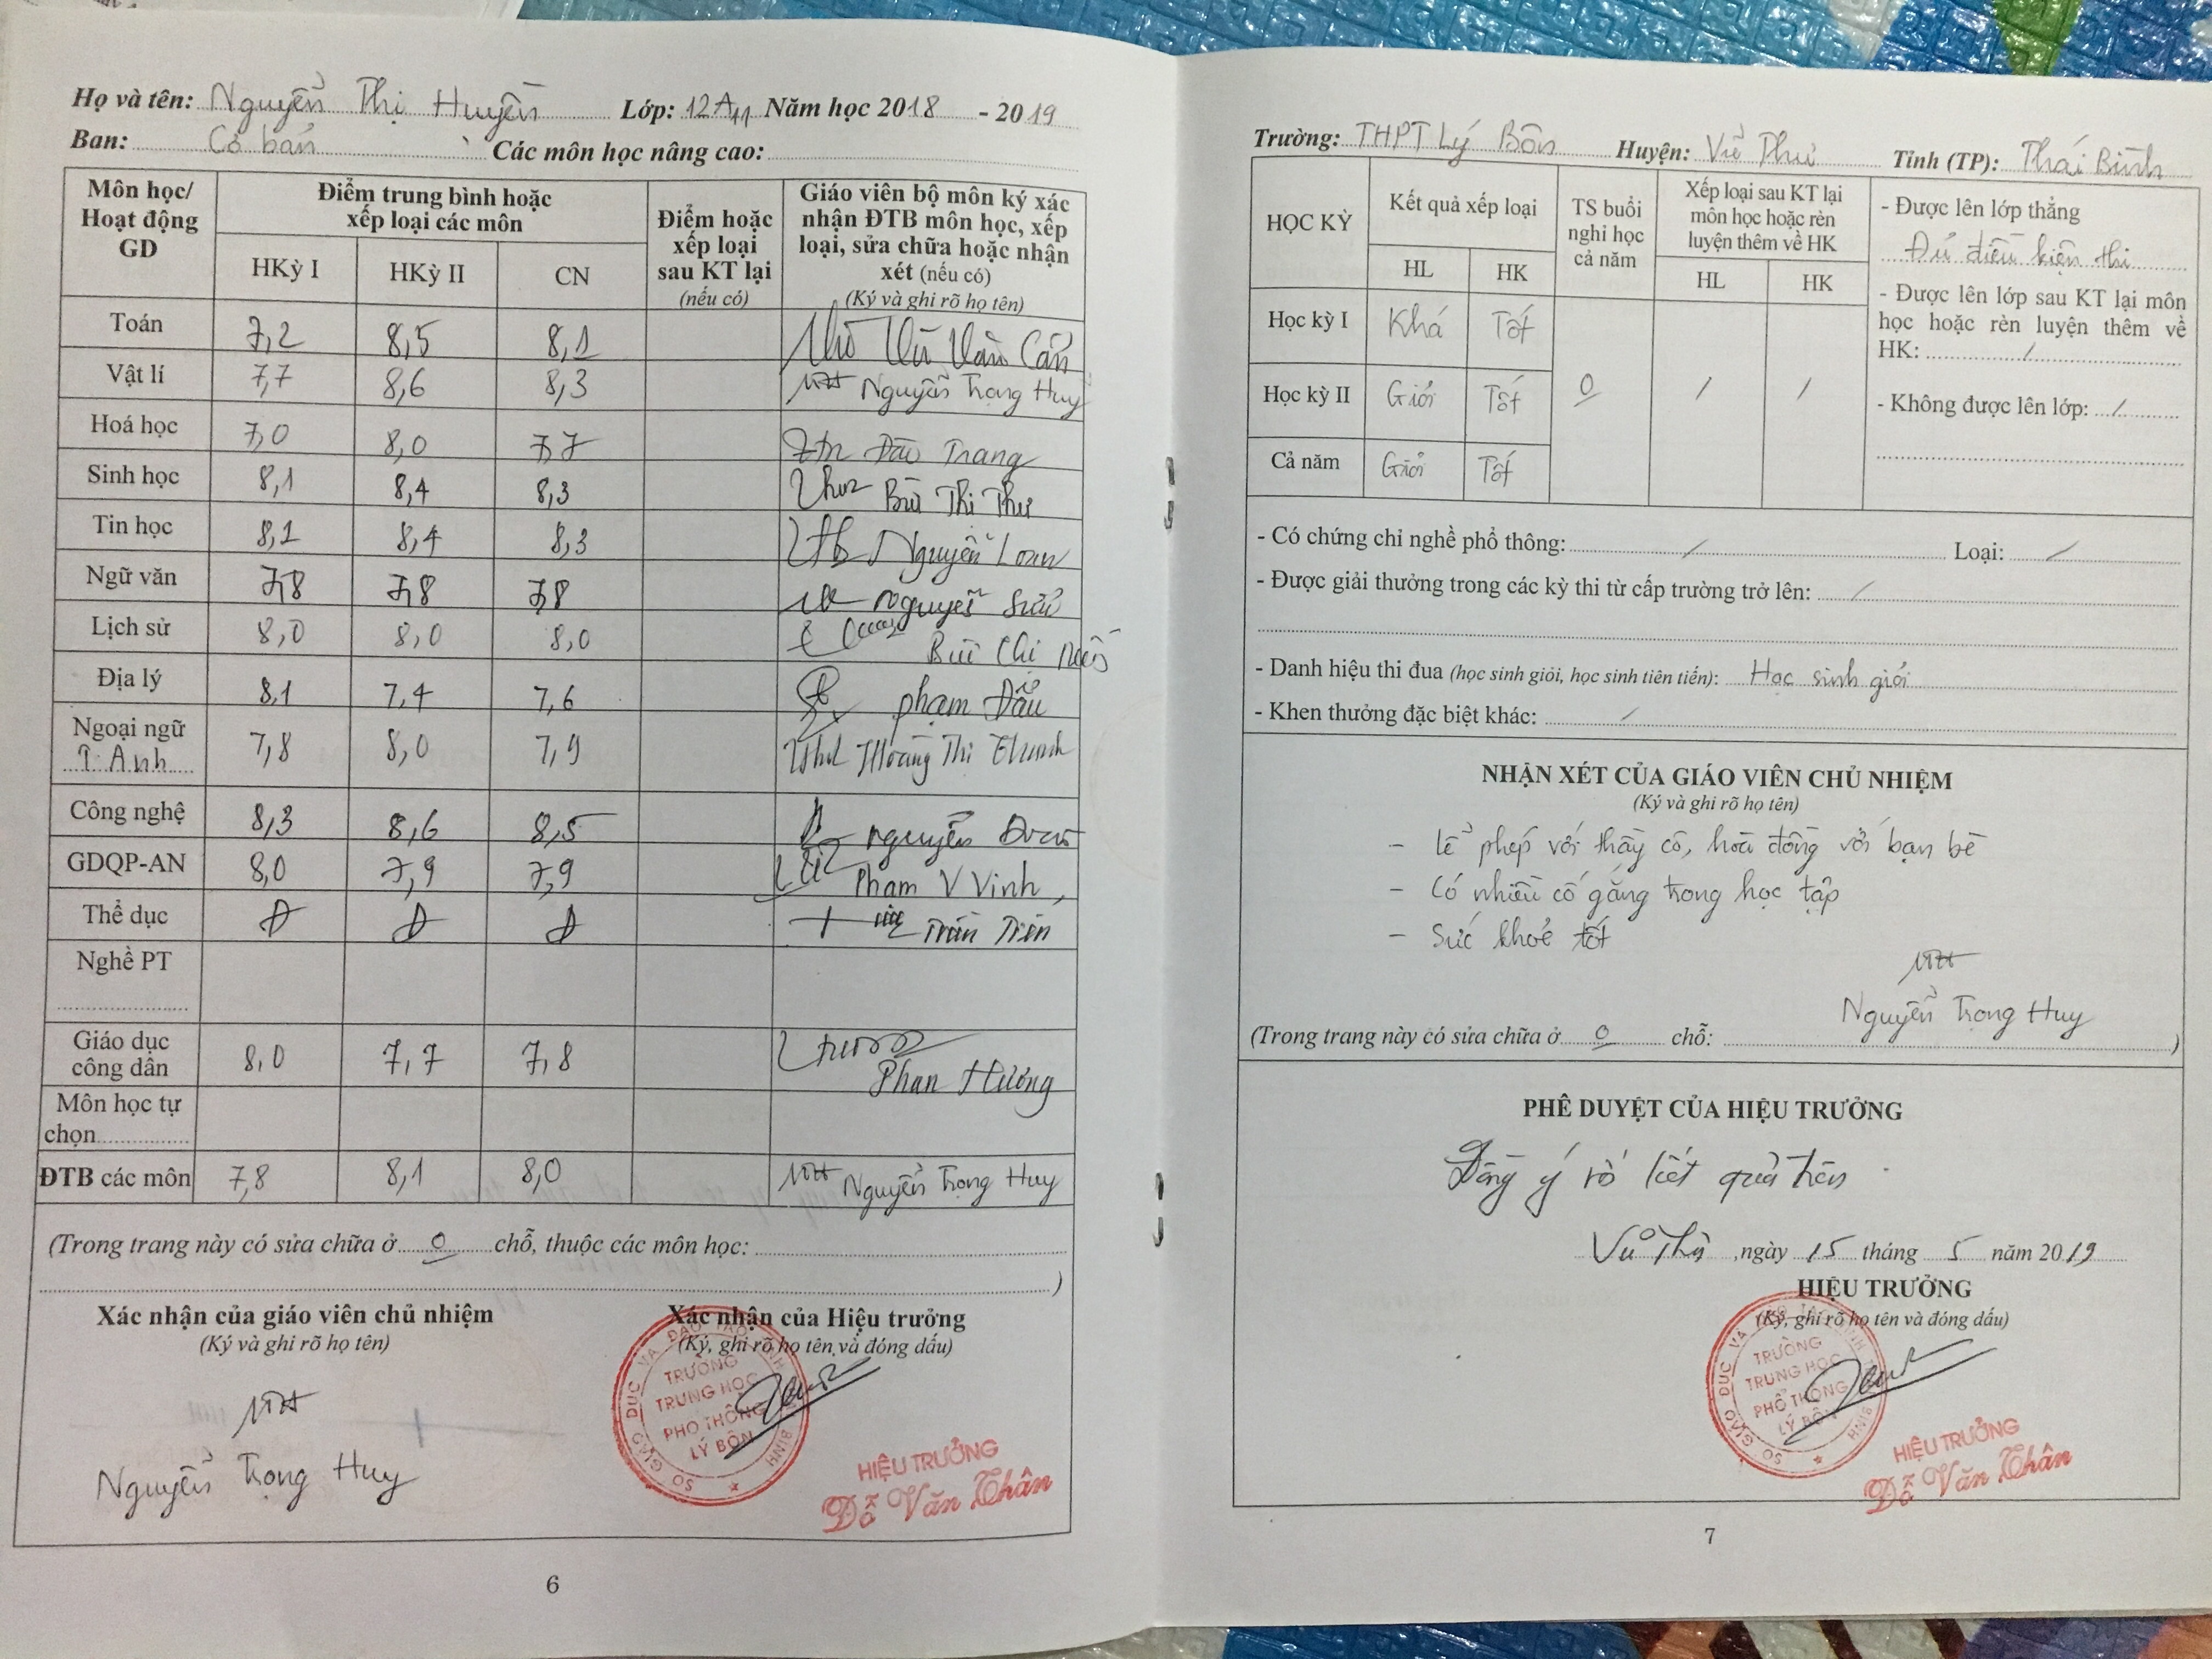 Họ và tên: Nguyễn Thị Huyền Lớp: 12A11 Năm học 2018 - 2019
Ban: Cơ bản Các môn học nâng cao:
Môn học/ Hoạt động GD
Điểm trung bình hoặc xếp loại các môn
Điểm hoặc xếp loại sau KT lại (nếu có)
Giáo viên bộ môn ký xác nhận ĐTB môn học, xếp loại, sửa chữa hoặc nhận xét (nếu có)
(Ký và ghi rõ họ tên)
HKỳ I HKỳ II CN
Toán 7,2 8,5 8,1
Vật lí 7,7 8,6 8,3 Nguyễn Trọng Huy
Hoá học 7,0 8,0 7,7 Đào Trang
Sinh học 8,1 8,4 8,3 Bùi Thị Thư
Tin học 8,1 8,4 8,3 Nguyễn Loan
Ngữ văn 7,8 7,8 7,8
Lịch sử 8,0 8,0 8,0
Địa lý 8,1 7,4 7,6 Phạm
Ngoại ngữ T.Anh 7,8 8,0 7,9 Hoàng Thị
Công nghệ 8,3 8,6 8,5 Nguyễn
GDQP-AN 8,0 7,9 7,9 Phạm V Vinh
Thể dục Đ Đ Đ Trần
Nghề PT
Giáo dục công dân 8,0 7,7 7,8 Phan Hường
Môn học tự chọn
ĐTB các môn 7,8 8,1 8,0 Nguyễn Trọng Huy
(Trong trang này có sửa chữa ở 0 chỗ, thuộc các môn học: )
Xác nhận của giáo viên chủ nhiệm
(Ký và ghi rõ họ tên)
Nguyễn Trọng Huy
Xác nhận của Hiệu trưởng
(Ký, ghi rõ họ tên và đóng dấu)
SỞ GIÁO DỤC VÀ ĐÀO TẠO THÁI BÌNH
TRƯỜNG
TRUNG HỌC
PHỔ THÔNG
LÝ BÔN
HIỆU TRƯỞNG
Đỗ Văn Khân
6
Trường: THPT Lý Bôn Huyện: Vũ Thư Tỉnh (TP): Thái Bình
HỌC KỲ
Kết quả xếp loại
TS buổi nghỉ học cả năm
Xếp loại sau KT lại môn học hoặc rèn luyện thêm về HK
HL HK HL HK
Học kỳ I Khá Tốt
Học kỳ II Giỏi Tốt 0 / /
Cả năm Giỏi Tốt
- Được lên lớp thẳng
Đủ điều kiện thi
- Được lên lớp sau KT lại môn học hoặc rèn luyện thêm về HK: /
- Không được lên lớp: /
- Có chứng chỉ nghề phổ thông: / Loại: /
- Được giải thưởng trong các kỳ thi từ cấp trường trở lên: /
- Danh hiệu thi đua (học sinh giỏi, học sinh tiên tiến): Học sinh giỏi
- Khen thưởng đặc biệt khác: /
NHẬN XÉT CỦA GIÁO VIÊN CHỦ NHIỆM
(Ký và ghi rõ họ tên)
- Lễ phép với thầy cô, hòa đồng với bạn bè
- Có nhiều cố gắng trong học tập
- Sức khoẻ tốt
Nguyễn Trọng Huy
(Trong trang này có sửa chữa ở 0 chỗ: )
PHÊ DUYỆT CỦA HIỆU TRƯỞNG
Đồng ý kết quả trên.
Vũ Thư, ngày 15 tháng 5 năm 2019
HIỆU TRƯỞNG
(Ký, ghi rõ họ tên và đóng dấu)
SỞ GIÁO DỤC VÀ ĐÀO TẠO THÁI BÌNH
TRƯỜNG
TRUNG HỌC
PHỔ THÔNG
LÝ BÔN
HIỆU TRƯỞNG
Đỗ Văn Khân
7